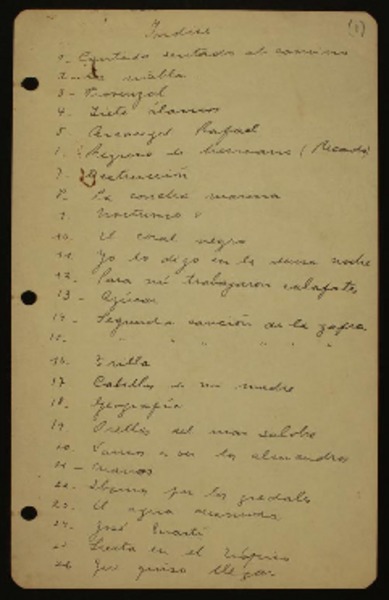 Indice (1)
1- sentado al camino
2- La niebla
3- Provenzal
4. Siete álamos
5. Arcangel Rafael
6. Regreso de (Ricardo)
7- Destrucción
8- La concha marina
9. Nocturno
10. El coral negro
11. Yo lo digo en la noche
12. Para mí trabajaron calafates
13- Azúcar
14- Segunda canción de la zafra
15. " " " "
16. Trilla
17 Cabellos de mi madre
18. Geografía
19. Orillas del mar salobre
20. Vamos a ver los almendros
21- Manos
22- Ibamos por los gredales
23. El agua
24. José Martí
25 Siesta en el trópico
26 quiso llegar